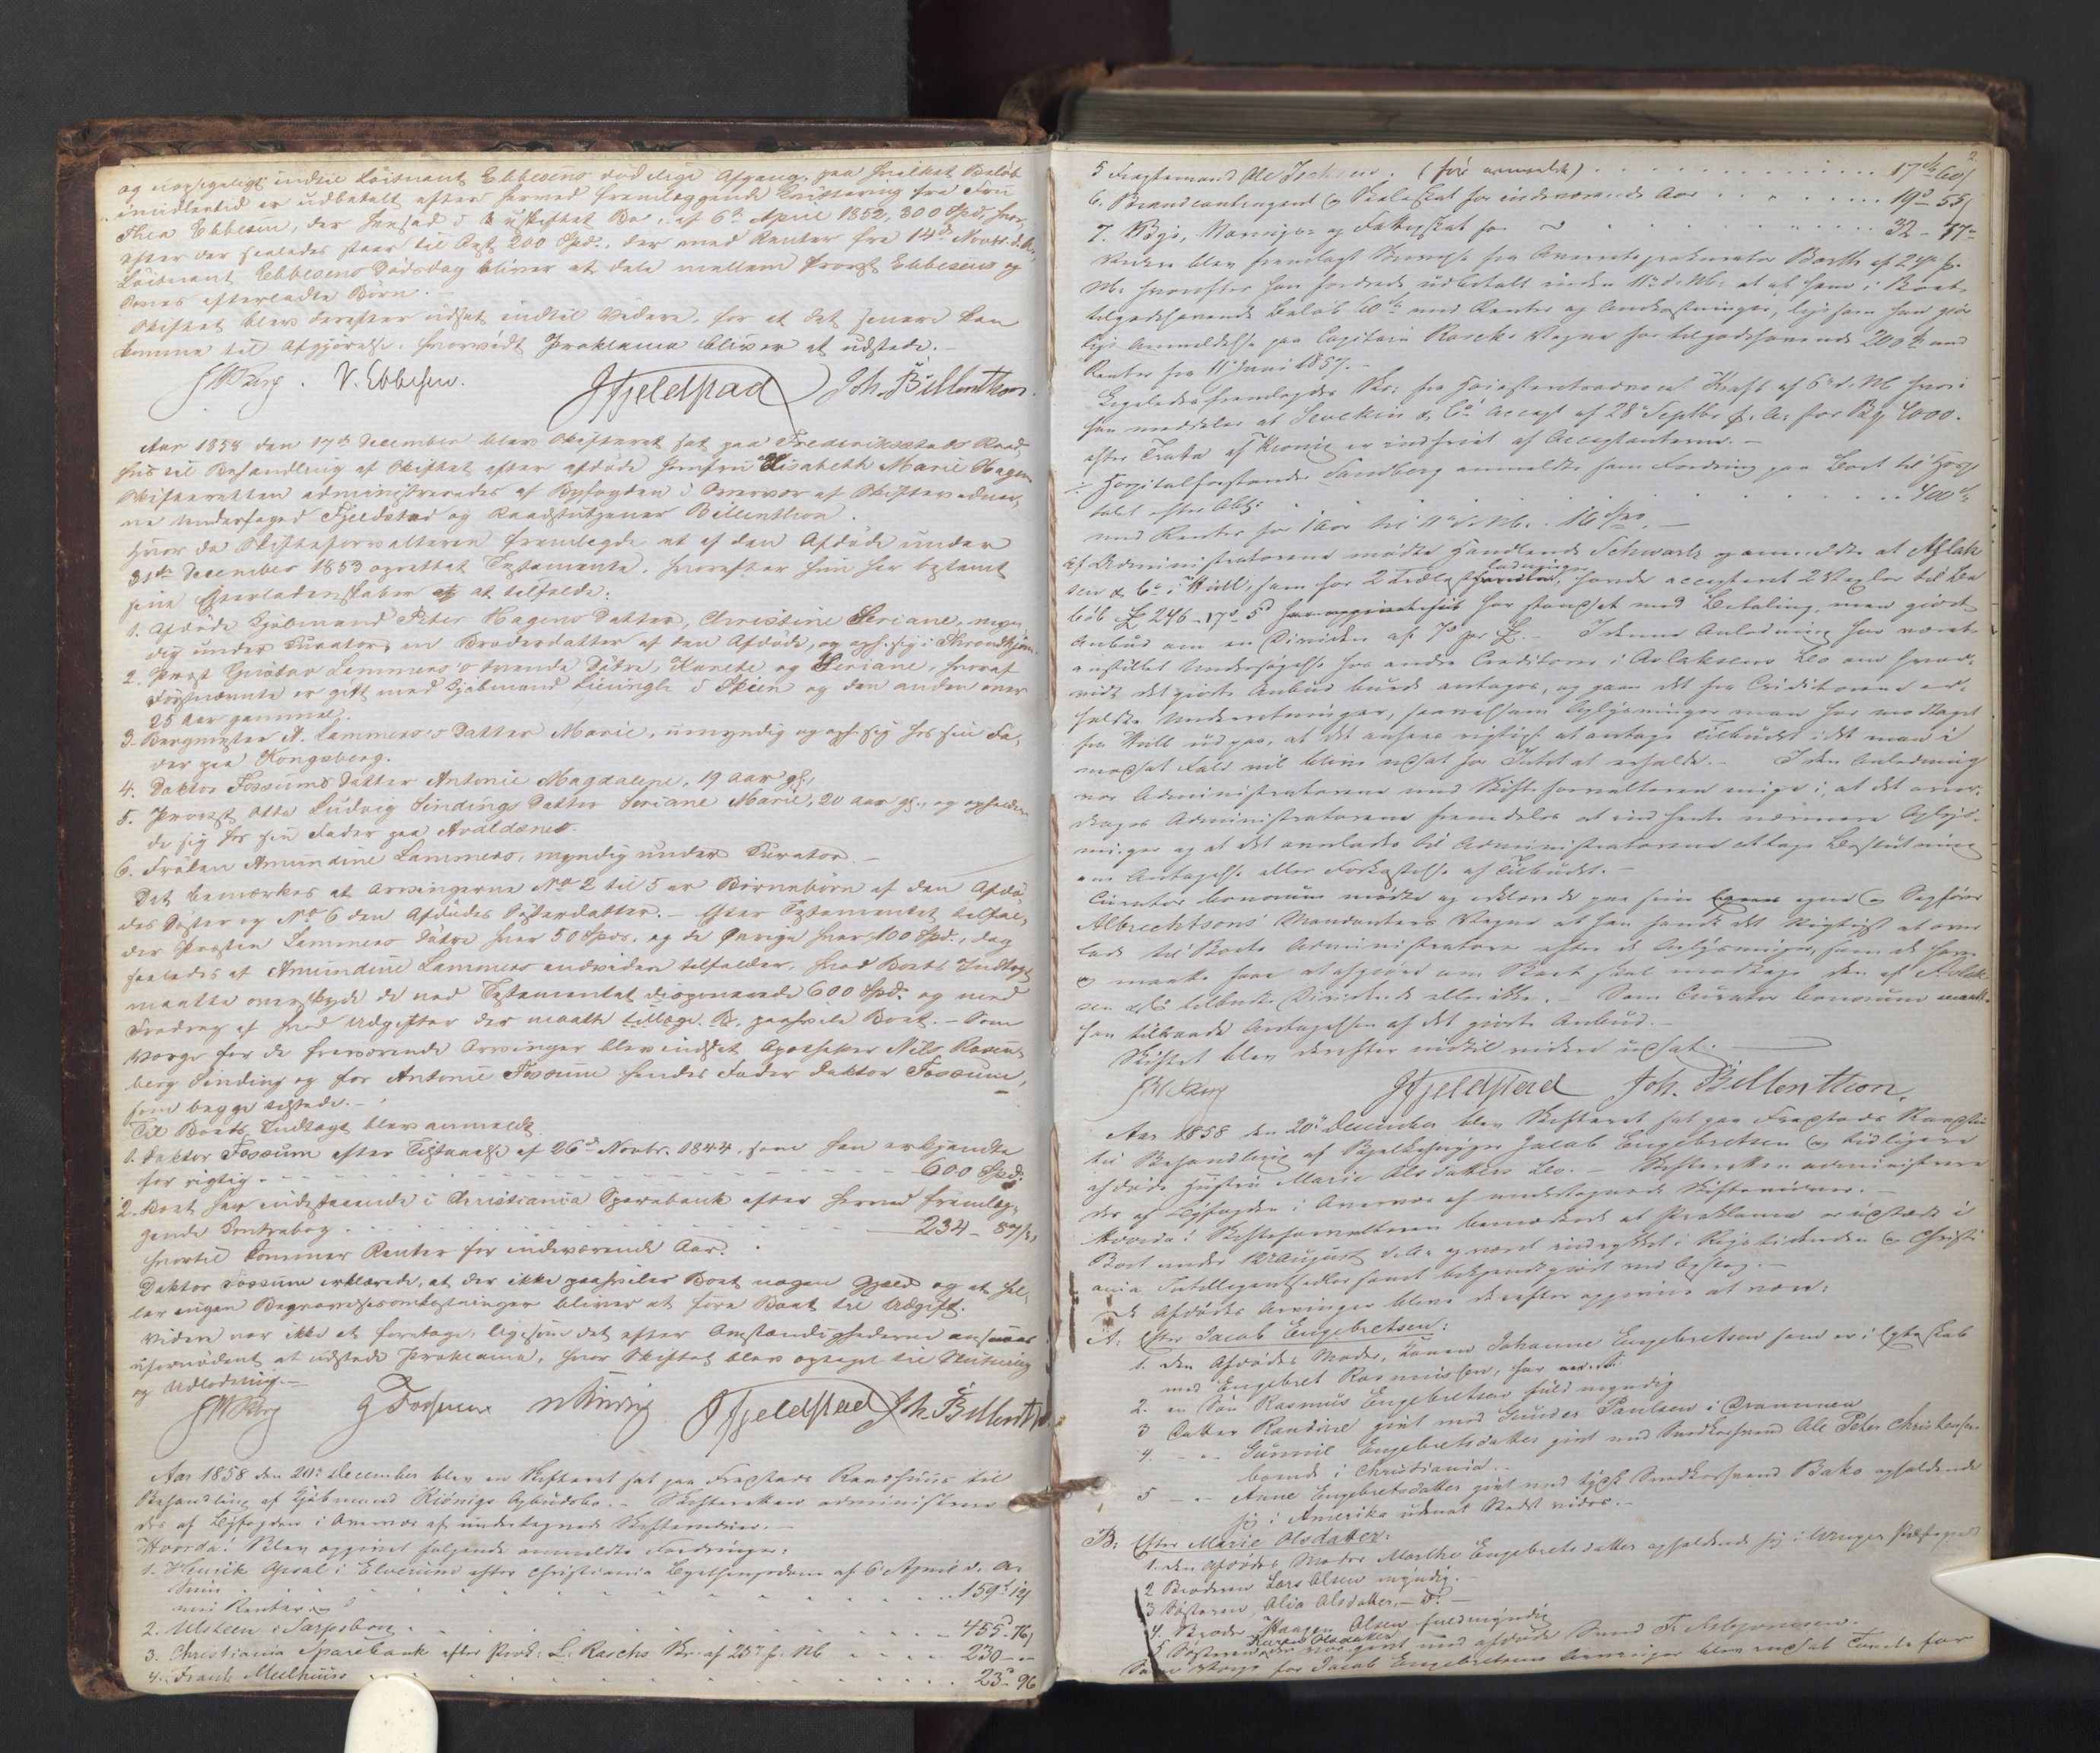 og uopsigeligt indtil Löitnant Ebbesens dödelige Afgang, paa hvilket Belöb
imidlertid er udbetalt efter herved fremlæggende Qvittering fra Fru
Thea Ebbesen, der hensad i uskiftet Bo, af 6te April 1852, 300 Spd, hvor,
efter der saaledes staar til Rest 200 Spd., der med Renter fra 14de Novbr. d. A.
Löitnant Ebbesens Dödsdag bliver at dele mellem Provst Ebbesens og
Bones efterladte Börn.
Skiftet blev derefter udsat indtil Videre, for at det senere kan
komme til Afgjörelse, hvorvidt Proklama bliver at udstede.
V. Ebbesen. JFjeldstad Joh. Billenthon
Aar 1858 den 17de December blev Skifteret sat paa Frederiksstads Raad,
huus til Behandling af Skiftet efter afdöde Jomfru Elisabeth Marie Hagen
Skifteretten administreredes af Byfogden i Overvær af Skiftevidner,
ne Underfoged Fjeldstad og Raadstutjener Billenthon.
Hvor da Skifteforvalteren fremlegde et af den Afdöde under
31de December 1853 oprettet Testamente, hvorefter hun har bestemt
sine Efterladenskaber at tilfalde:
1. Afdöde Kjöbmand Peter Hagens Datter, Christine Seriane, myn,
dig under Curator, en Broderdatter af den Afdöde, og oph. sig i Throndhjem.
2. Prest Gustav Lammers's tvende Dötre, Karete og Seriane, hvoraf
Förstnævnte er gift med Kjöbmand i Skien og den anden over
25 Aar gammel.
3. Bergmester A. Lammers's Datter Marie, umyndig og oph. sig hos sin Fa,
der paa Kongsberg.
4. Doktor Fossums Datter Antonie Magdalene, 19 Aar gl.,
5. Provst Otto Ludvig Sindings Datter Seriane Marie, 20 Aar gl., og opholden
de sig hos sin Fader paa Avaldsnes.
6. Fröken Amundine Lammers, myndig under Curator.
Det bemærkes at Arvingerne No 2 til 5 er Börnebörn af den Afdö,
des Söster og No 6 den Afdödes Sösterdatter. - Efter Testamentet tilfal,
der Presten Lammers Dötre hver 50 Spd. og de Övrige hver 100 Spd., dog
saaledes at Amundine Lammers endvidere tilfalder, hvad Boets Indtægt
maatte overskyde de ved Testamentet disponerede 600 Spd. og med
Fradrag af hvad Udgifter der maatte paahvile Boet. - Som
Værge for de fraværende Arvinger blev indsat Apotheker Nils Rosen,
berg Sinding og for Antonie Fossum hendes Fader Doktor Fossum,
som begge tilstede. -
Til Boets Indtægt blev anmeldt.
1. Doktor Fossum efter Tilstaaelse af 26de Novbr. 1844, som han erkjendte
for rigtig - 600 Spd.
2. Boet har indestaaende i Christiania Sparebank efter herved fremlæg,
gende Contrabog 234 - 57
hvortil kommer Renter for indeværende Aar.
Doktor Fossum erklærede, at der ikke paahviler Boet nogen Gjæld og at hel,
ler ingen Begravelsesomkostninger bliver at före Boet til Udgift.
Videre var ikke at foretage, ligesom det efter Omstændighederne ansaaes
ufornödent at udstede Proklama, hvor Skiftet blev optaget til Slutning
og Udlodning. -
G Fossum NSinding JFjeldstad Joh. Billenthon
Aar 1858 den 20de December blev en Skifteret sat paa Fredstads Raadhuus til
Behandling af Kjöbmand Kiönigs Opbudsbo. - Skifteretten administrere
des af Byfogden i Overvær af undertegnede Skiftevidner. -
Hvorda! Blev opgivet fölgende anmeldte Fordringer:
1. Henrik i Elverum efter Christiania Bythingsdom af 6 April d. A.
med Renter 159
2. Ulsteen i Sarpsborg 455 - 76
3. Christiania Sparebank efter Prok: L. Raschs Skr. af 25de f. Md 230 - "
4. Frantz Meelhuus 23 - 96
2.
5 Fragtemand Ole (före anmeldt) 17 60
6. Brandcontingent og Skoleskat for indeværende Aar 19 - 55
7. Byes, Nærings og Fattigskat for Do 32 - 77
Videre blev fremlagt Skrivelse fra Overretsprokurator Barth af 24de f.
Md. hvorefter han fordrede udbetalt inden 11te d. Md. et af ham i Boet
tilgodehavende Belöb 60 med Renter og Omkostninger, ligesom han gjör
Anmeldelse paa Capitain Raschs Vegne for tilgodehavende 200 med
Renter fra 11 Juni 1857. -
Ligeledes fremlagdes Skr: fra Höiesteretsadvocat Kraft af 6te d. Md. hvori
han meddeler at & Co Accept af 28de Septbr f. A. for 4000.
efter Trata af Kionig er indfriet af Acceptanterne. -
Hospitalforstander Sandberg anmeldte som Fordring paa Boet til Hospi
talet efter Obl: 400
med Renter for 1 Aar til 11te d. Md. 16
Af Administratorerne mödte Handlende Schwartz og anmeldte at Aslak
sen & Co i Hull, som for 2 Trælastladninger havde accepteret 2 Vexler til Be
löb £ 246 - 17s 5d har standset med Betaling, men gjort
Anbud om en Dividende af 7s per £. - I denne Anledning har været
anstillet Undersögelse hos andre Creditorer i Aslaksens Bo om hvor,
vidt det gjorte Anbud burde antages, og gaar det fra Creditorerne er,
holdte Underretninger, saavelsom Oplysninger man har modtaget
fra Hull ud paa, at det ansees rigtigst at antage Tilbudet, idet man i
modsat Fald vil blive udsat for Intet at erholde. - I den Anledning
var Administratorerne med Skifteforvalteren enige i, at det over,
drages Administratorerne fremdeles at indhente nærmere Oplys,
ninger og at det overlades til Administratorerne at tage Beslutning
om Antagelse eller Forkastelse af Tilbudet. -
Curator bonorum mödte og erklærede paa sine egne og Sagförer
Albrechtsons Mandanters Vegne at han fandt det Rigtigst at over
lade til Boets Administratorer efter de Oplysninger, som de have
og maatte faae at afgjöre om Boet skal modtage den af Aslak
sen & Co tilbudte Dividende eller ikke. - Som Curator bonorum
han tilraade Antagelsen af det gjorte Anbud. -
Skiftet blev derefter indtil videre udsat.
JFjeldstad Joh. Billenthon.
Aar 1858 den 20de December blev Skifteret sat paa Fredstads Raadhuus
til Behandling af Jacob Engebretsen og tidligere
afdöde Hustru Marie Olsdatters Bo. - Skifteretten administrere
des af Byfogden i Overvær af undertegnede Skiftevidner. -
Hvorda! Skifteforvalteren bemærkede at Proklama er udstedt i
Boet under 12 August d. A. og været indrykket i Rigstidenden og Christi
ania Intelligentssedler samt bekjendtgjort ved Opslag. -
De Afdödes Arvinger bleve derefter opgivne at være:
A: Efter Jacob Engebretsen:
1. Den Afdödes Moder, Konen Johanne Engebretsen som er i Egteskab
med Engebret Rasmussen, har
2. en Sön Rasmus Engebretsen fuldmyndig
3 Datter Randine givt med Gunder Paulsen i Drammen
4. - " - Gunnil Engebretsdatter givt med Snedkersvend Ole Peter Christensen
boende i Christiania. -
5 - " - Anne Engebretsdatter givt med tydsk Snedkersvend Bako opholdende
sig i Amerika udenat Stedet vides. -
B: Efter Marie Olsdatter:
1. Den Afdödes Moder Marthe Engebretsdatter opholdende sig i Præstegjeld
2 Broderen Lars Olsen myndig. -
3 Sösteren, Olia Olsdatter, - Do -
4. Broder Haagen Olsen fuldmyndig
5 Sösteren Karen Olsdatter givt med afdöde Svend F.
Som Værge for Jacob Engebretsens Arvinger blev indsat for